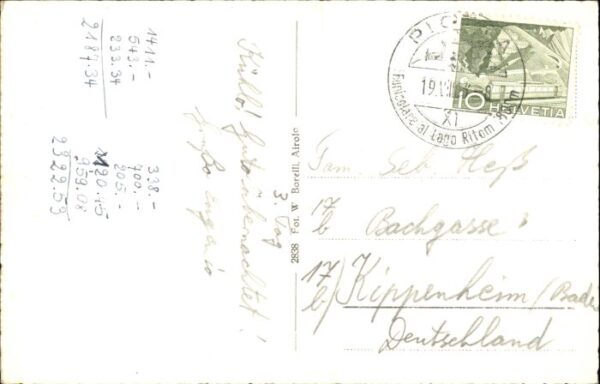 1411.-
543.-
233.34
2187.34
338.-
400.-
205.-
190.45
959.08
2329.53
3. Tag
Gut übernachtet!
2838 Fot. W. Borelli, Airolo
PIOTTA
19.VII
XI
Funicolare al Lago Ritom
10 HELVETIA
Fam. Seb. Heß
17
b Bachgasse
17
b/ Kippenheim/Baden
Deutschland